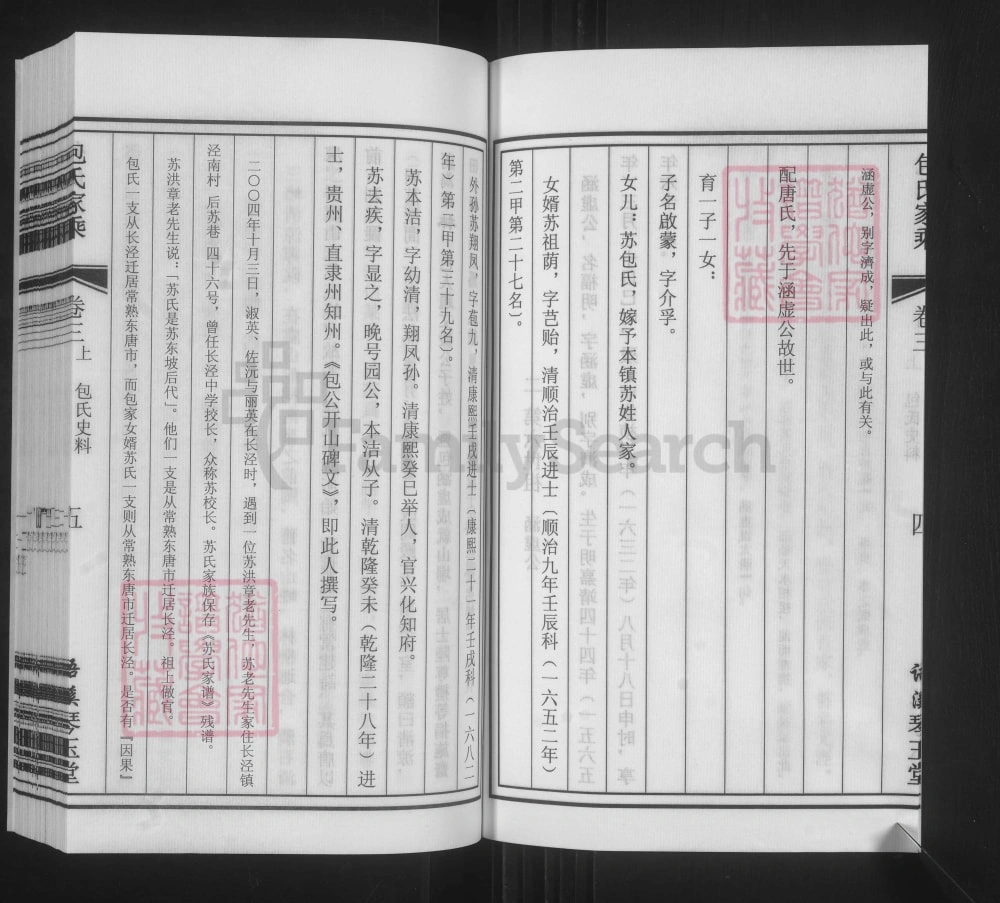 包氏家乘
卷三
四
涵虚公，别字濟成，疑出此，或与此有关。
配唐氏，先于涵虚公故世。
育一子一女：
子名啟蒙，字介孚。
女儿：苏包氏，嫁予本镇苏姓人家。
女婿苏祖荫，字芑贻，清顺治壬辰进士（顺治九年壬辰科（一六五二年）
第二甲第二十七名）。
外孙苏翔凤，字苞九，清康熙壬戌进士（康熙二十一年壬戌科（一六八二
年）第二甲第三十九名）。
苏本洁，字幼清，翔凤孙。清康熙癸巳举人，官兴化知府。
苏去疾，字显之，晚号园公，本洁从子。清乾隆癸未（乾隆二十八年）进
士，贵州、直隶州知州。《包公开山碑文》，即此人撰写。
二〇〇四年十月三日，淑英、佐沅与丽英在长泾时，遇到一位苏洪章老先生，苏老先生家住长泾镇
泾南村 后苏巷 四十六号，曾任长泾中学校长，众称苏校长。苏氏家族保存《苏氏家谱》残谱。
苏洪章老先生说：「苏氏是苏东坡后代」。他们一支是从常熟东唐市迁居长泾。祖上做官。
包氏一支从长泾迁居常熟东唐市，而包家女婿苏氏一支则从常熟东唐市迁居长泾。是否有『因果』
包氏家乘
卷三 上 包氏史料
五
琴玉堂
FamilySearch